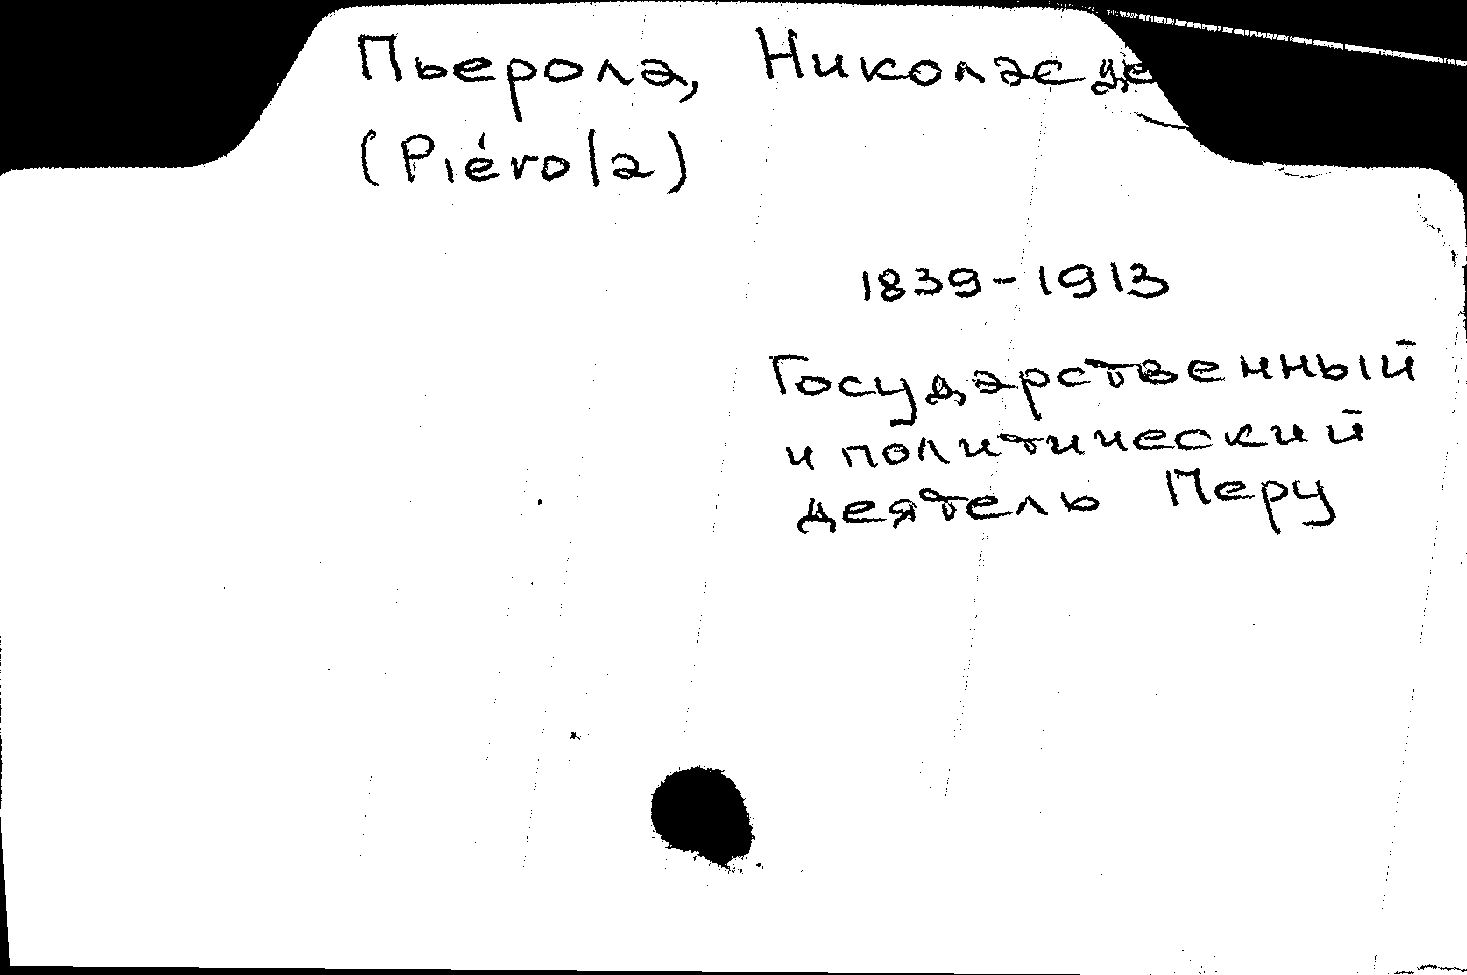 Пьерола, Николас де
(Piérola)
1839-1913
Государственный
и политический
деятель Перу